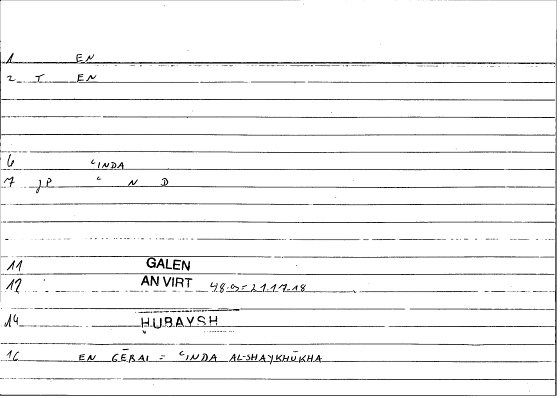 1 EN
2 T EN
6 ʿINDA
7 JP ʿ N D
11 GALEN
12 AN VIRT
14 ḤUBAYSH
16 EN GĒRAI = ʿINDA AL-SHAYKHŪKHA